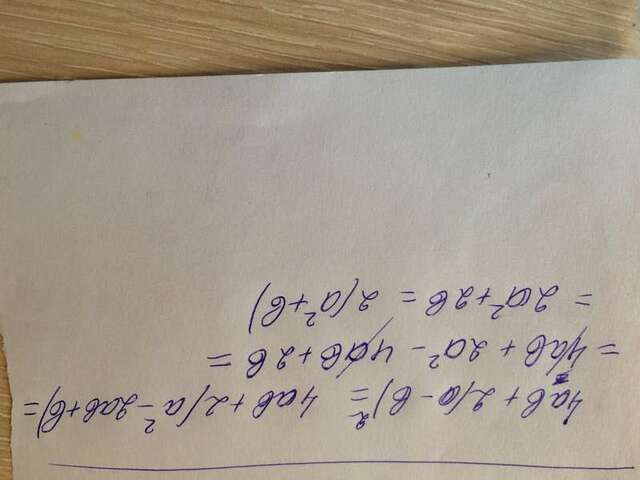 4ab + 2(a - b)² = 4ab + 2(a² - 2ab + b) =
= 4ab + 2a² - 4ab + 2b =
= 2a² + 2b = 2(a² + b)